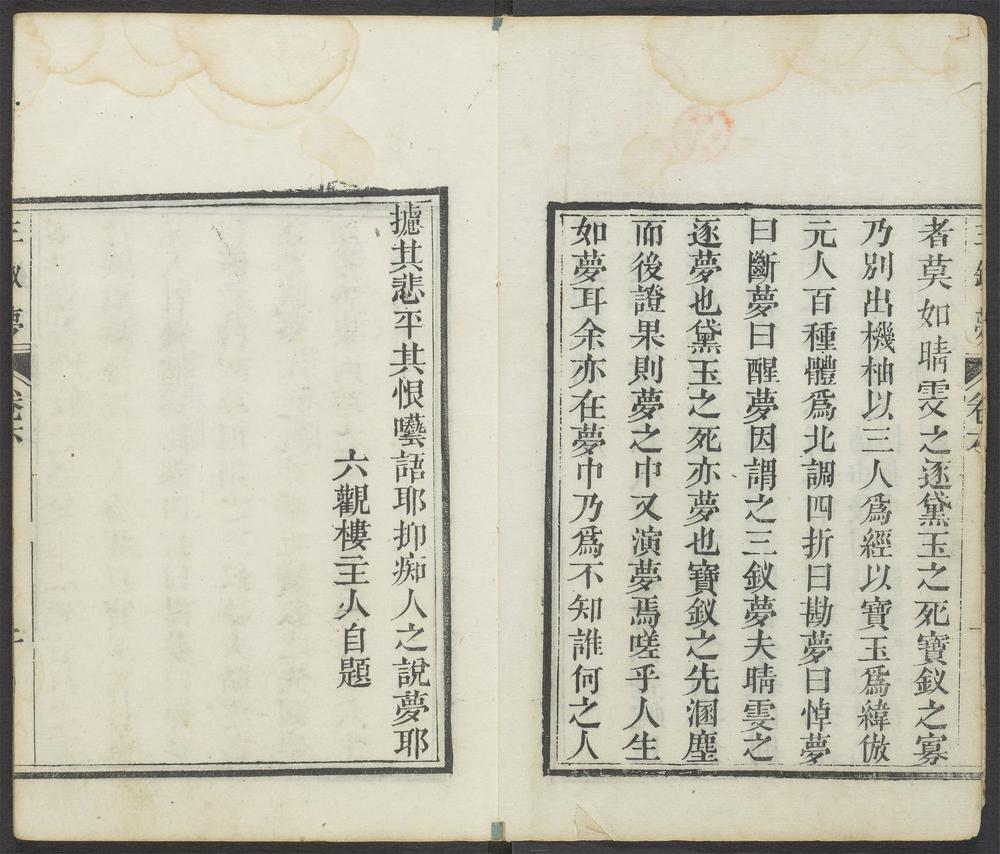 者莫如晴雯之逐黛玉之死寶釵之寡
乃別出機柚以三人爲經以寶玉爲緯倣
元人百種體爲北調四折曰勘夢曰悼夢
曰斷夢曰醒夢因謂之三釵夢夫晴雯之
逐夢也黛玉之死亦夢也寶釵之先溷塵
而後證果則夢之中又演夢焉嗟乎人生
如夢耳余亦在夢中乃爲不知誰何之人
攄其悲平其恨囈語耶抑痴人之說夢耶
六觀樓主人自題
三釵夢
卷六